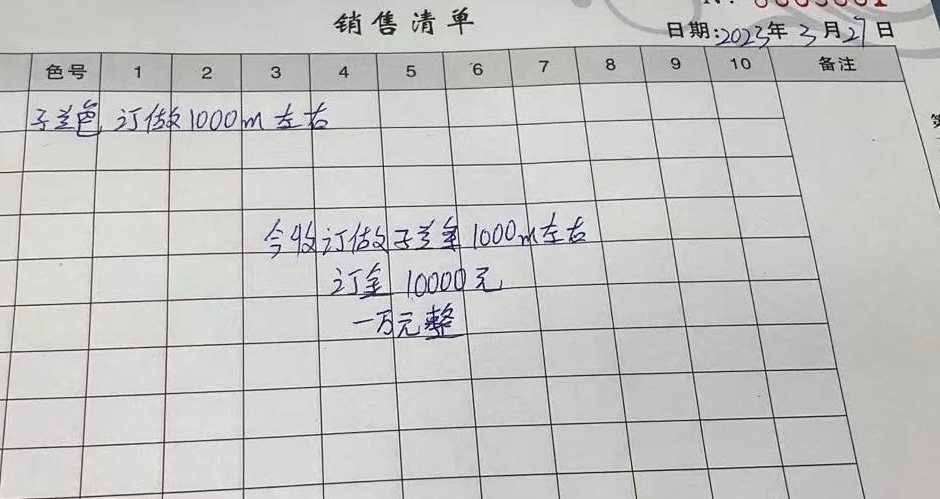 销售清单
日期:2023年3月27日
色号 1 2 3 4 5 6 7 8 9 10 备注
子兰色 订做1000m左右
今收订做子兰 1000m左右
订金 10000元
一万元整